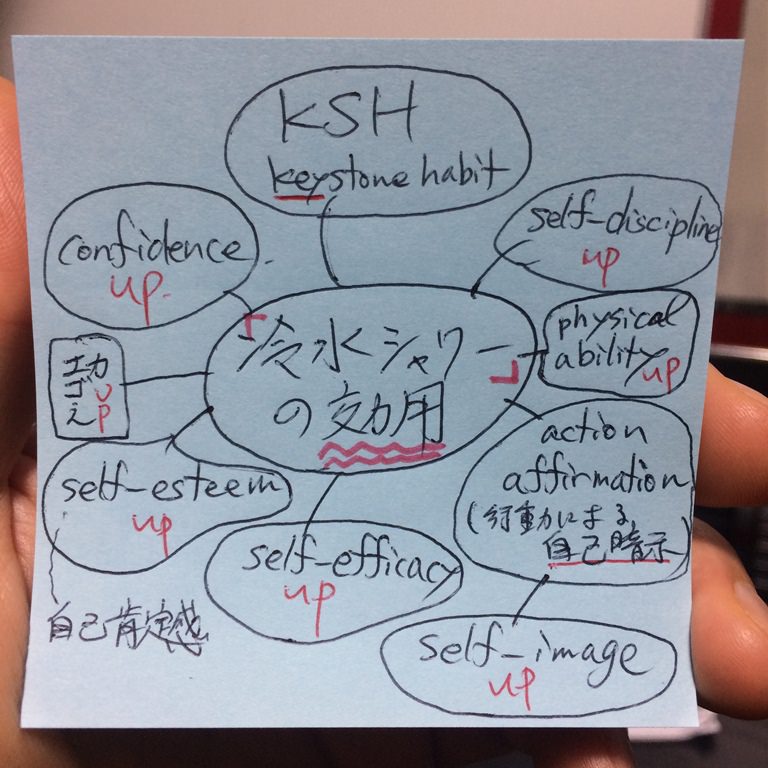 KSH
keystone habit
confidence
up
self-discipline
up
「冷水シャワー」
の効用
physical
ability up
エゴえ
力up
self-esteem
up
自己肯定感
self-efficacy
up
action
affirmation
(行動による
自己暗示)
self-image
up